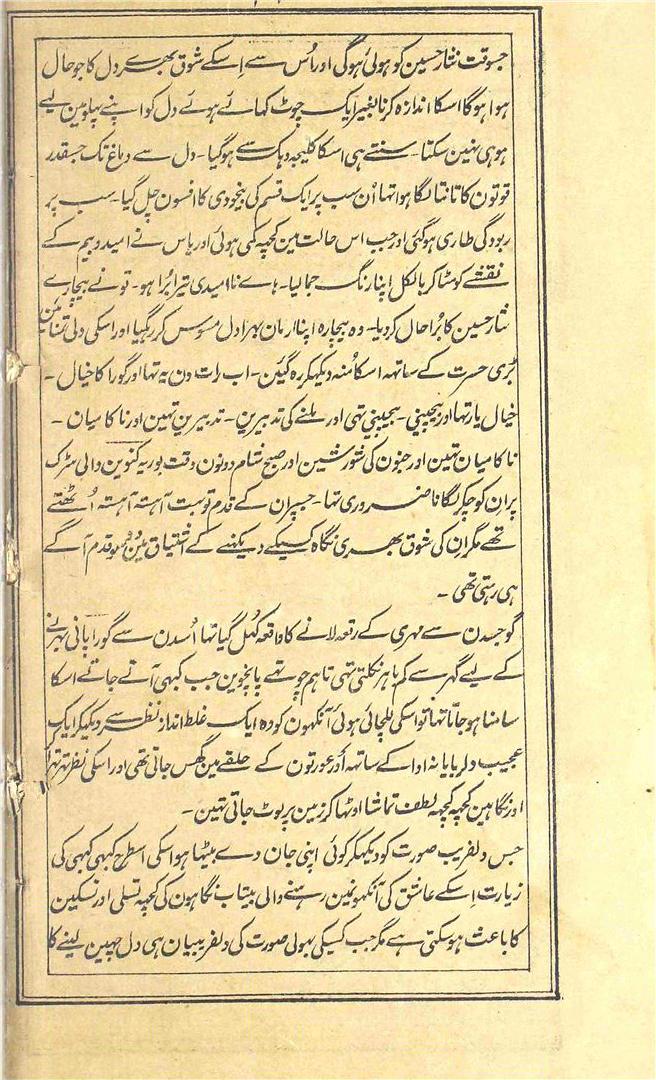 جسوقت نثار حسین کو ہوئی ہوگی اور اُس سے اِسکے شوق بھرے دل کا جو حال
ہوا ہوگا اسکا اندازہ کرنا بغیر ایک چوٹ کہائے ہوئے دل کو اپنے پہلو مین لیے
ہو ہی نہین سکتا۔ سنتے ہی اسکا کلیجہ دہک سے ہوگیا۔ دل سے دماغ تک جسقدر
قوتون کا تانتا لگا ہوا تہا اُن سب پر ایک قسم کی بیخودی کا افسون چل گیا۔ سب پر
ربودگی طاری ہوگئی اور جب اس حالت مین کچہہ کمی ہوئی اور یاس نے امید و بیم کے
نقشے کو مٹا کر بالکل اپنا رنگ جما لیا۔ ہاے نا امیدی تیرا برُا ہو۔ تو نے بیچارے
نثار حسین کا بُرا حال کر دیا۔ وہ بیچارہ اپنا ارمان بہرا دل مسوس کر رہگیا اور اسکی دلی تمنائین
بڑی حسرت کے ساتہہ اسکا مُنہ دیکہکر رہ گئین۔ اب رات دن یہ تہا اور گورا کا خیال۔
خیال یار تہا اور بیچینی۔ بیچینی تہی اور ملنے کی تدبیرین۔ تدبیرین تہین اور ناکامیان۔
ناکامیان تہین اور جنون کی شورشین اور صبح شام دونون وقت بوریہ کنوین والی سڑک
پر ان کو چکر لگانا ضروری تہا۔ جسپر ان کے قدم تو بہت آہستہ آہستہ اُٹھتے
تھے مگر ان کی شوق بھری نگاہ کسیکے دیکہنے کے اشتیاق مین قدم آگے
ہی رہتی تھی۔
گو جسدن سے مہری کے رقعہ لانے کا واقعہ کُہل گیا تہا اُسدن سے گورا پانی بہرنے
کے لیے گہر سے کم باہر نکلتی تہی تاہم چوتھے پانچوین جب کبہی آتے جاتے اسکا
سامنا ہو جاتا تہا تو اسکی للچائی ہوئی آنکہون کو وہ ایک غلط انداز نظر سے دیکہکر ایک
عجیب دلربایانہ ادا کے ساتہہ اَور عورتون کے حلقے مین گھس جاتی تھی اور اسکی نظر تہرتہرا
اور نگاہین کچہہ کچہہ لطف تماشا اوٹہا کر زمین پر لوٹ جاتی تہین۔
جس دلفریب صورت کو دیکہکر کوئی اپنی جان دے بیٹہا ہو اسکی اسطرح کبہی کبہی کی
زیارت اسکے عاشق کی آنکہونمین رہنے والی بیتاب نگاہون کی کچہہ تسلی اور تسکین
کا باعث ہو سکتی ہے مگر جب کسیکی بہولی صورت کی دلفریبیان ہی دل چہین لینے کا